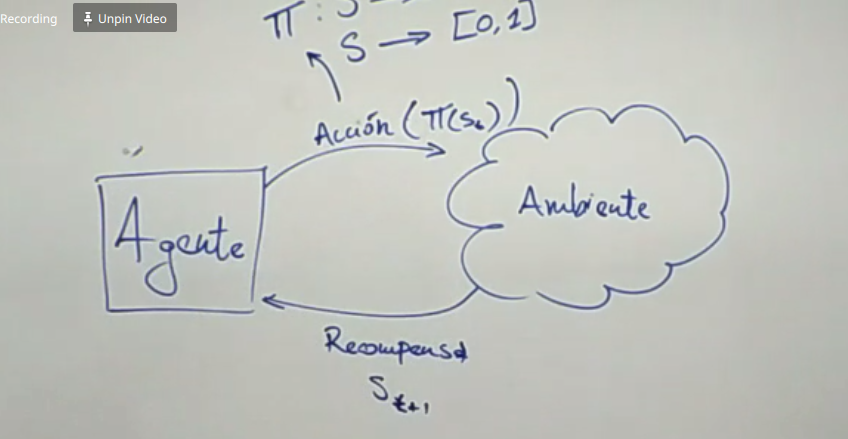 Recording
Unpin Video
π : S
S → [0,1]
Acción (π(sₜ))
Agente
Ambiente
Recompensa
Sₜ₊₁